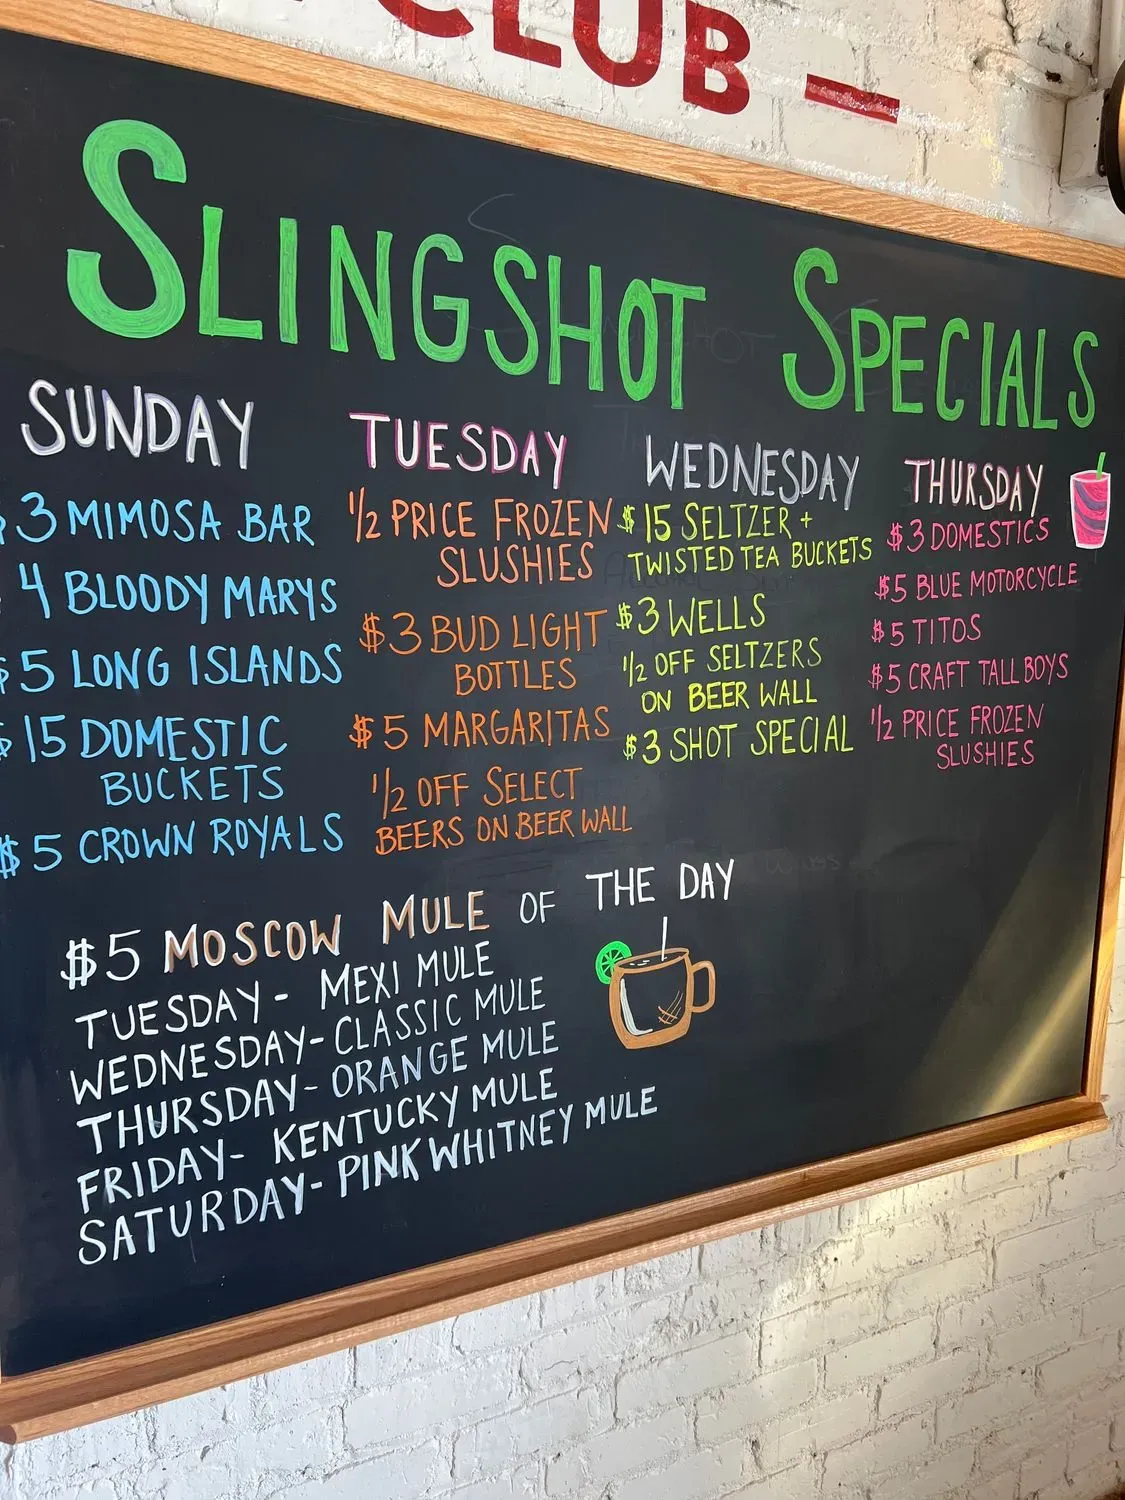 CLUB —
SLINGSHOT SPECIALS
SUNDAY
$3 MIMOSA BAR
4 BLOODY MARYS
$5 LONG ISLANDS
$15 DOMESTIC
BUCKETS
$5 CROWN ROYALS
TUESDAY
1/2 PRICE FROZEN
SLUSHIES
$3 BUD LIGHT
BOTTLES
$5 MARGARITAS
1/2 OFF SELECT
BEERS ON BEER WALL
WEDNESDAY
$15 SELTZER +
TWISTED TEA BUCKETS
$3 WELLS
1/2 OFF SELTZERS
ON BEER WALL
$3 SHOT SPECIAL
THURSDAY
$3 DOMESTICS
$5 BLUE MOTORCYCLE
$5 TITOS
$5 CRAFT TALL BOYS
1/2 PRICE FROZEN
SLUSHIES
$5 MOSCOW MULE OF THE DAY
TUESDAY - MEXI MULE
WEDNESDAY - CLASSIC MULE
THURSDAY - ORANGE MULE
FRIDAY - KENTUCKY MULE
SATURDAY - PINK WHITNEY MULE